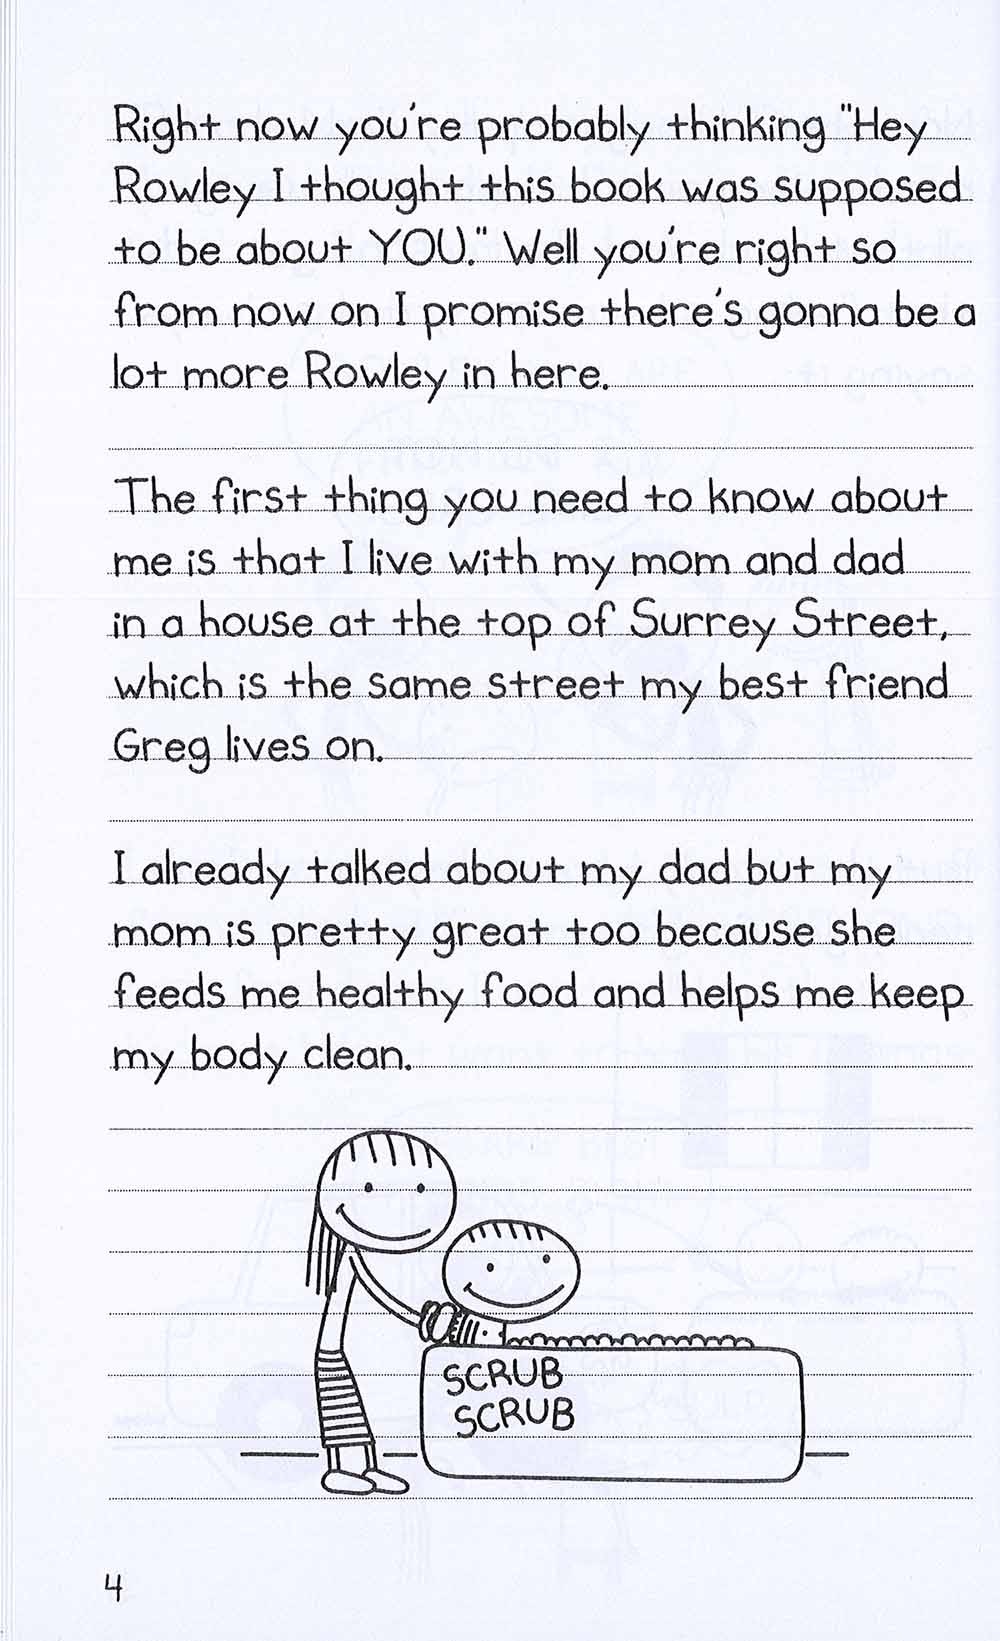 Right now you're probably thinking "Hey
Rowley I thought this book was supposed
to be about YOU." Well you're right so
from now on I promise there's gonna be a
lot more Rowley in here.
The first thing you need to know about
me is that I live with my mom and dad
in a house at the top of Surrey Street,
which is the same street my best friend
Greg lives on.
I already talked about my dad but my
mom is pretty great too because she
feeds me healthy food and helps me keep
my body clean.
SCRUB
SCRUB
4